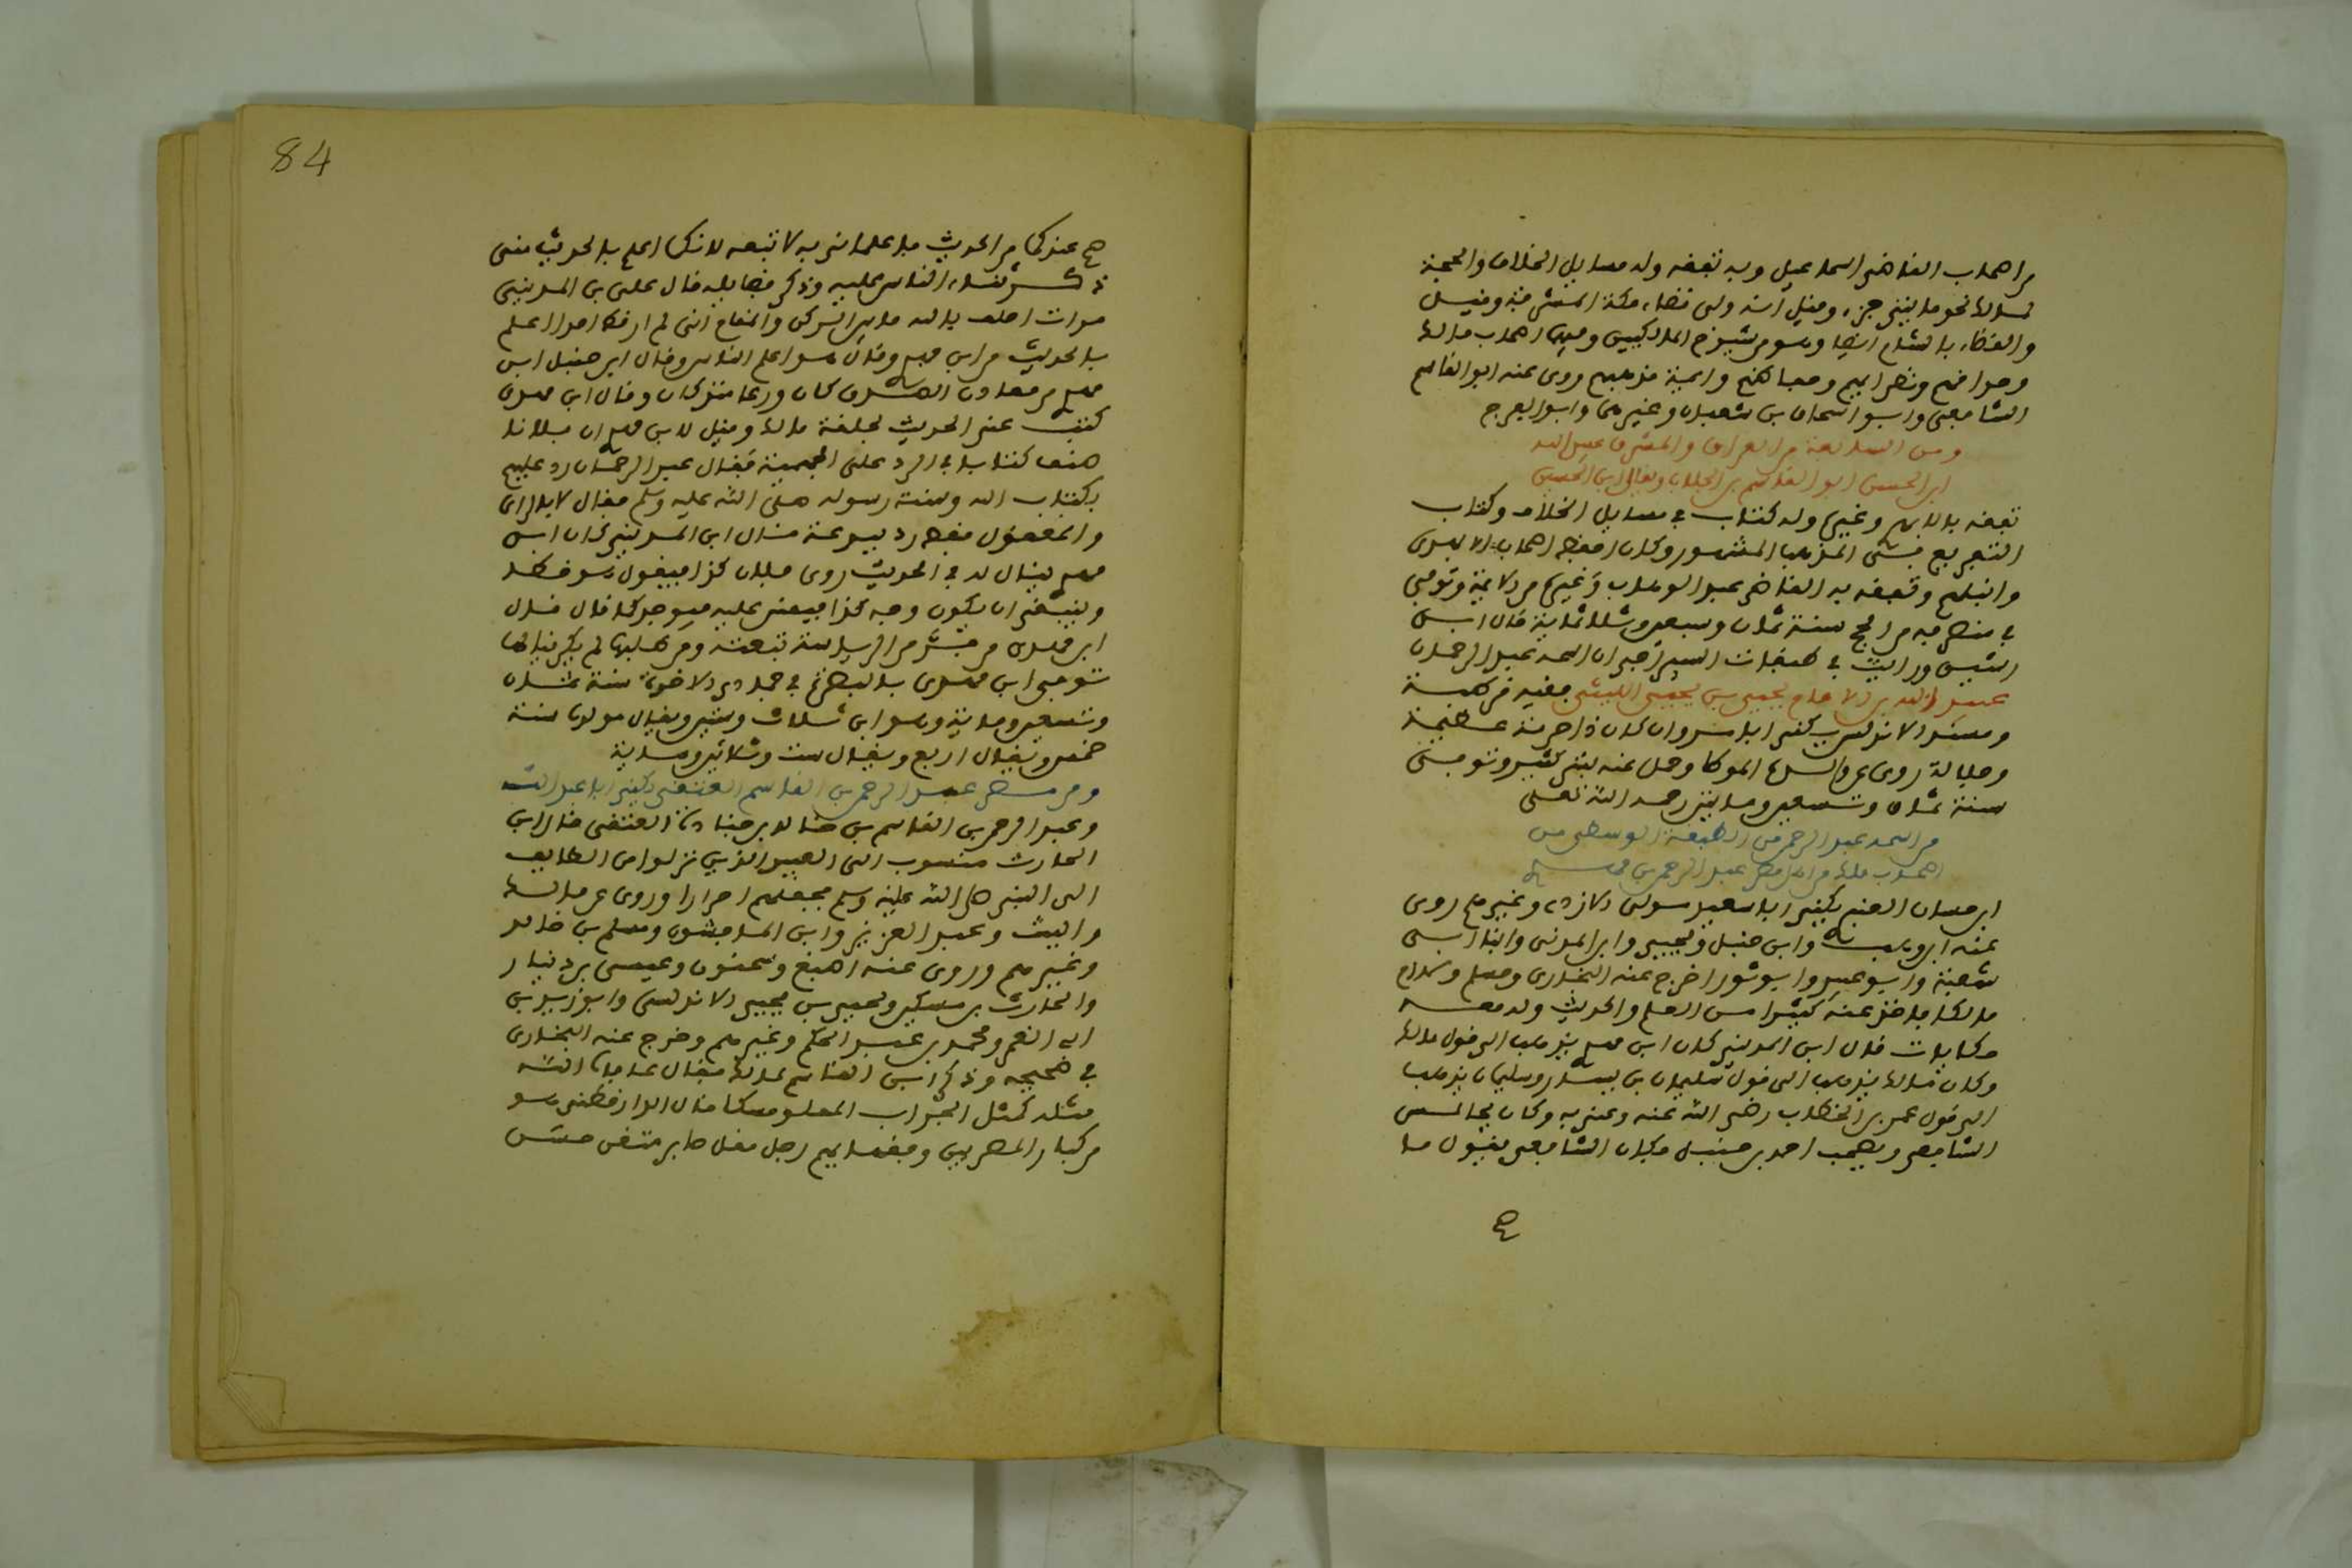 من اصحاب القاضي اسماعيل وبه تفقه وله مسايل الخلاف والحجة
لمالك نحو مايتي جزء وقيل انه ولي قضاء مكة
والقضاء بالشام ايضا وهو من شيوخ المالكيين اصحاب مالك
مذهبهم روى عنه ابو القاسم
الشافعي وابو اسحاق بن شعبان وغيرهما وابو الفرج
ومن السابعة من العراق والمشرق عبيد الله
ابن الحسن ابو القاسم بن الجلاب ويقال ابن الحسين
تفقه بالابهري وغيره وله كتاب في مسايل الخلاف وكتاب
التفريع في المذهب المشهور وكان افقه اصحاب الابهري
وانبلهم وتفقه به القاضي عبد الوهاب وغيره من الايمة وتوفي
في منصرفه من الحج سنة ثمان وسبعين وثلاثماية قال ابن
ورايت في طبقات اسمه عبد الرحمان
عبيد الله بن الامام يحيى بن يحيى الليثي فقيه قرطبة
ومسند الاندلس يكنى ابا مروان كان ذا حرمة عظيمة
وجلالة روى عن والده الموطا وحمل عنه بشر كثير وتوفي
سنة ثمان وتسعين ومايتين رحمه الله تعلى
من اسمه عبد الرحمن من الطبقة الوسطى من
اصحاب مالك عبد الرحمن بن مهدي
ابن حسان العنبري يكنى ابا سعيد مولى الازد وغيرهم روى
عنه ابن وهب وابن حنبل ويحيى وابن المديني وابنا ابي
شيبة وابو عبيد وابو ثور اخرج عنه البخاري ومسلم ولازم
مالكا فاخذ عنه كثيرا من العلم والحديث وله معه
حكايات قال ابن المديني كان ابن مهدي يذهب الى قول مالك
وكان مالك يذهب الى قول سليمان بن يسار وسليمان يذهب
الى قول عمر بن الخطاب رضي الله عنه وعنهم وكان يجالس
الشافعي ويصحب احمد بن حنبل وكان الشافعي يقول ما
84
صح عندكما من الحديث فاعلماني به لاتبعه لانكما اعلم بالحديث مني
ذكر ثناء الناس عليه وذكر فضايله قال علي بن المديني
مرات احلف بالله ما بين الركن والمقام اني لم ار قط احدا اعلم
بالحديث من ابن مهدي وقال هو اعلم الناس وقال ابن حنبل ابن
مهدي من معادن الصدق كان ورعا وقال ابن مهدي
كتبت عني الحديث بحلقة مالك وقيل لابن مهدي ان فلانا
صنف كتابا في الرد على الجهمية فقال عبد الرحمان رد عليهم
بكتاب الله وسنة رسوله صلى الله عليه وسلم فقال لا بالراي
والمعقول فقال رد بدعة قال ابن المديني كان ابن
مهدي يقال له في الحديث روى فلان كذا فيقول هو خطا
وينبغي ان يكون وجه كذا فيفتش عليه فيوجد كما قال قال
ابن مهدي من فر من الرياسة تبعته ومن طلبها لم يكن ينالها
توفي ابن مهدي بالبصرة في جمادى الاخرة سنة ثمان
وتسعين وماية وهو ابن ثلاث وستين ويقال مولده سنة
خمس ويقال اربع ويقال ست وثلاثين وماية
ومن مصر عبد الرحمن بن القاسم العتقي يكنى ابا عبد الله
وعبد الرحمن بن القاسم بن خالد بن جنادة العتقي قال ابن
الحارث منسوب الى العبيد الذين نزلوا من الطايف
الى النبي صلى الله عليه وسلم فجعلهم احرارا وروى عن مالك
والليث وعبد العزيز وابن الماجشون ومسلم بن خالد
وغيرهم وروى عنه اصبغ وسحنون وعيسى بن دينار
والحارث بن مسكين ويحيى بن يحيى الاندلسي وابو زيد بن
ابي الغمر ومحمد بن عبد الحكم وغيرهم وخرج عنه البخاري
في صحيحه وذكر ابن القاسم لمالك فقال عافاه الله
مثله كمثل الجراب المملو مسكا قال الدارقطني هو
من كبار المصريين وفقهايهم رجل صابر متقن حسن